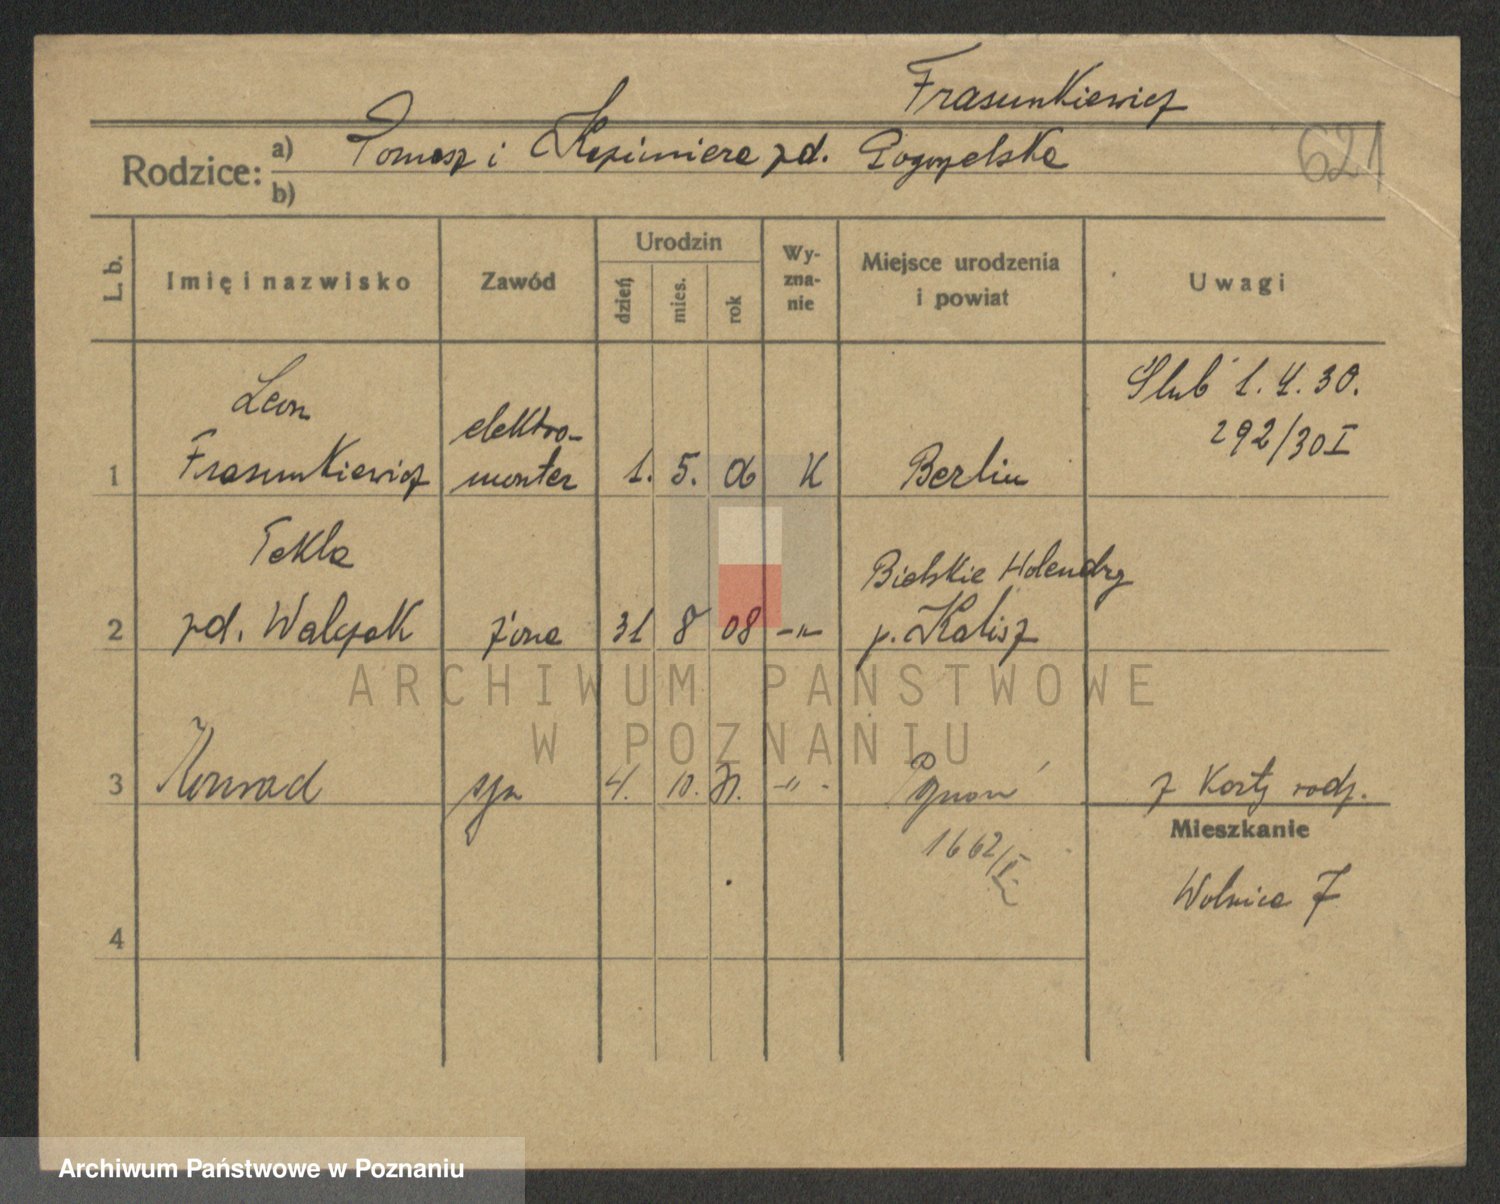 Frasunkiewicz
621
Rodzice: a) Tomasz i Kazimiera zd. Pogorzelska
b)
L. b.
Imię i nazwisko
Zawód
Urodzin
dzień
mies.
rok
Wy-
zna-
nie
Miejsce urodzenia
i powiat
Uwagi
Leon
Frasunkiewicz
elektro-
monter
1 1. 5. 06 K Berlin
Ślub 1. 4. 30.
292/30 I
Tekla
2 zd. Walczak żona 31 8 08 -"-
Bielskie Holendry
p. Kalisz
ARCHIWUM PAŃSTWOWE
W POZNANIU
3 Konrad syn 4. 10. 31. -"- Poznań z Karty rodz.
1662/I
Mieszkanie
Wolnica 7
4
Archiwum Państwowe w Poznaniu